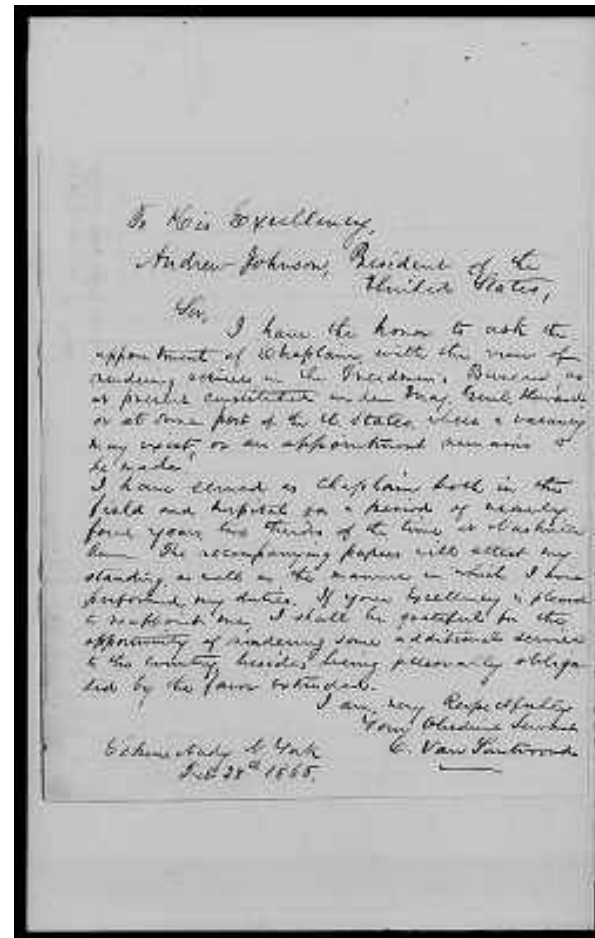 To His Excellency,
Andrew Johnson, President of the
United States,
Sir,
I have the honor to ask the
appointment of Chaplain with the view of
rendering services in the Freedmen's Bureau as
at present constituted under Maj. Genl. Howard
or at some post of the U. States where a vacancy
may exist, or an appointment remains to
be made.
I have served as Chaplain both in the
field and hospital for a period of nearly
four years, two thirds of the time at Nashville
Tenn. The accompanying papers will attest my
standing as well as the manner in which I have
performed my duties. If your Excellency is pleased
to reappoint me, I shall be grateful for the
opportunity of rendering some additional service
to the country besides being personally obliga
ted by the favor extended.
I am, very Respectfully
Your Obedient Servant
C. Van Santvoord
N. York
28th 1865.